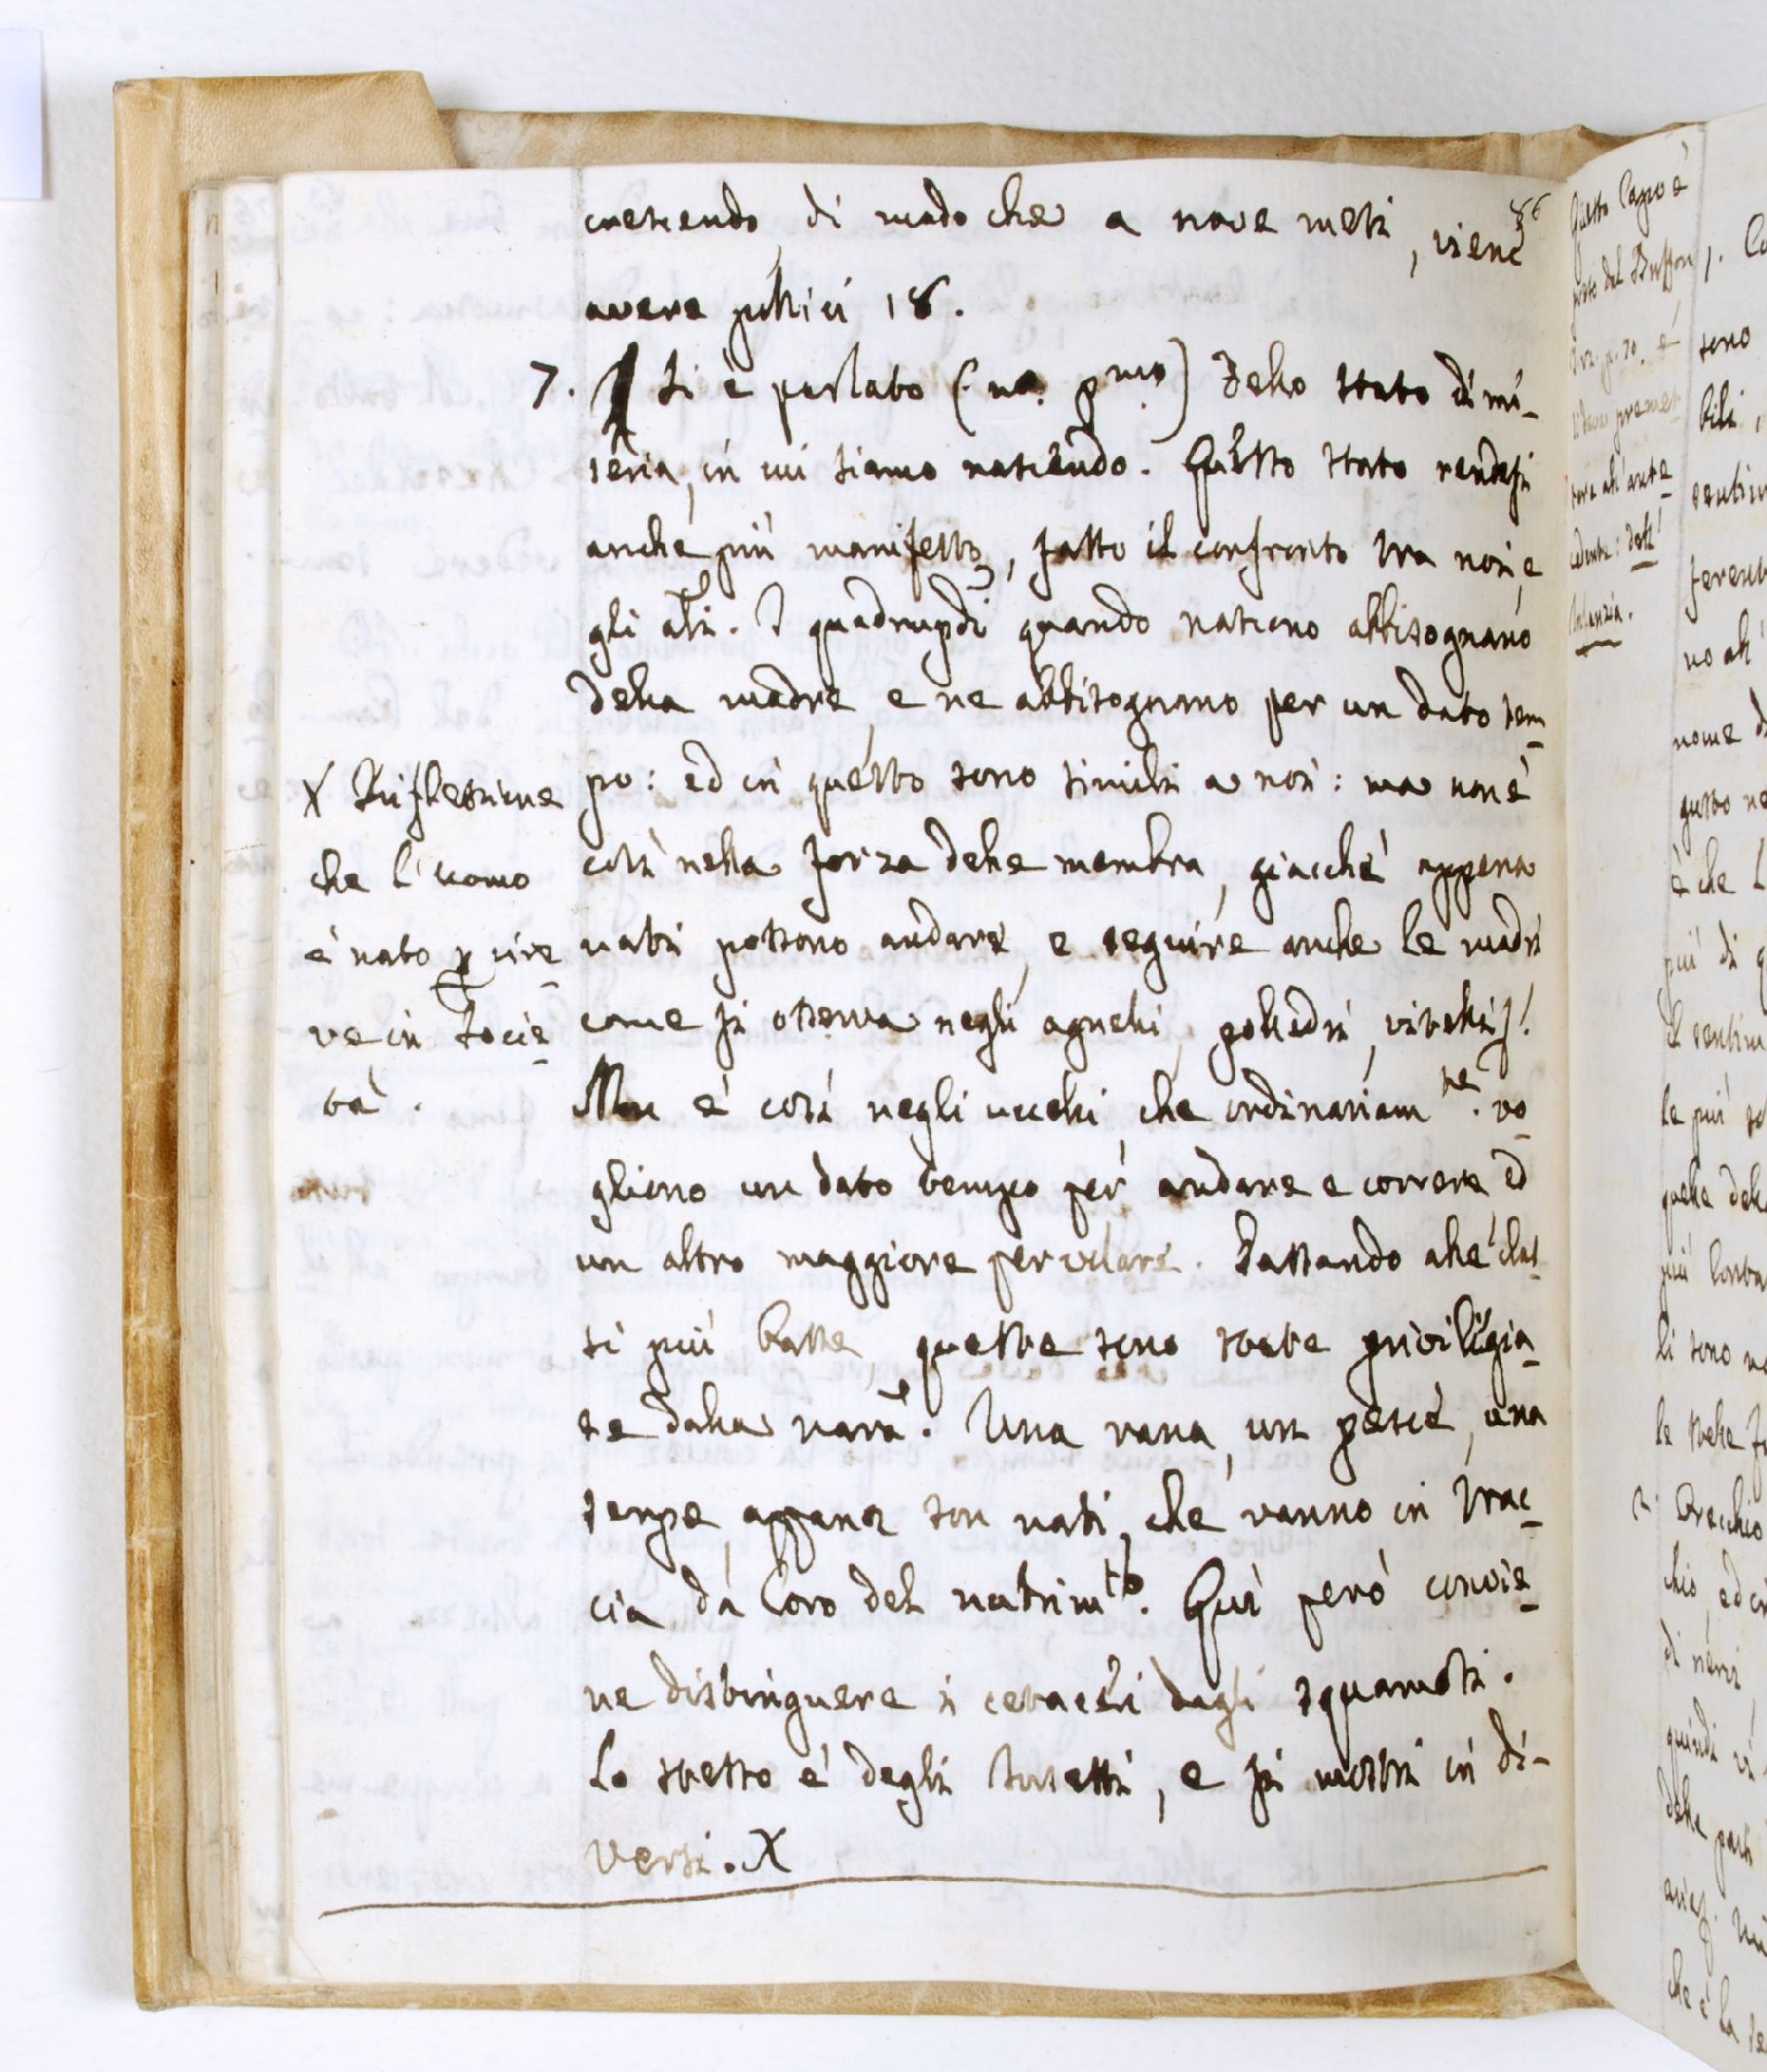 86
crescendo, di modo che a nove mesi, viene
avere pollici 18.
7. Si è parlato (n.o p.mo) dello stato di mi-
seria, in cui siamo nascendo. Questo stato rendesi
anche più manifesto, fatto il confronto tra noi, e
gli altri. I quadrupedi quando nascono abbisognano
della madre, e ne abbisognano per un dato tem-
po: ed in questo sono simili a noi: ma non è
così nella forza delle membra, giacchè appena
nati possono andare, e seguire anche le madri
come si osserva negli agnelli, polledri, vitelli
Non è così negli uccelli che ordinariam.te vo-
gliono un dato tempo per andare e correre, ed
un altro maggiore per volare. Passando alle clas-
si più basse, queste sono state privilegia-
te dalla nara. Una rana, un pesce, una
serpe appena son nati, che vanno in trac-
cia da loro del nutrim.to. Quì però convie-
ne distinguere i cetacei dagli squamosi.
Lo stesso è degli Insetti, e si mostri in di-
versi. X
X Riflessione
che l'uomo
è nato p vive-
re in Socie-
tà.
Questo Capo è
preso dal Buffon
premet-
tere all'ante-
cedente: dell'
Infanzia.
sono
nome
è che
più di
il sentim
le più
quelle
li sono
Orecchio
quindi
delle parti
che è la